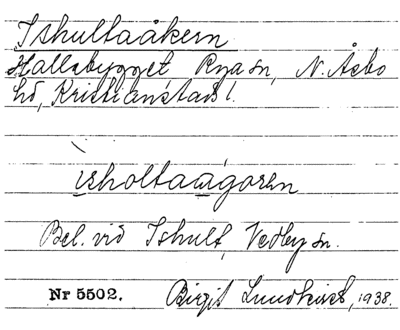 Ishultaåkern
Hallabygget, Rya sn, N. Åsbo
hd, Kristianstads l.
ı̀sholtaágoren
Bel. vid Ishult, Vedby sn.
Nr 5502. Birgit Lundkvist, 1938.